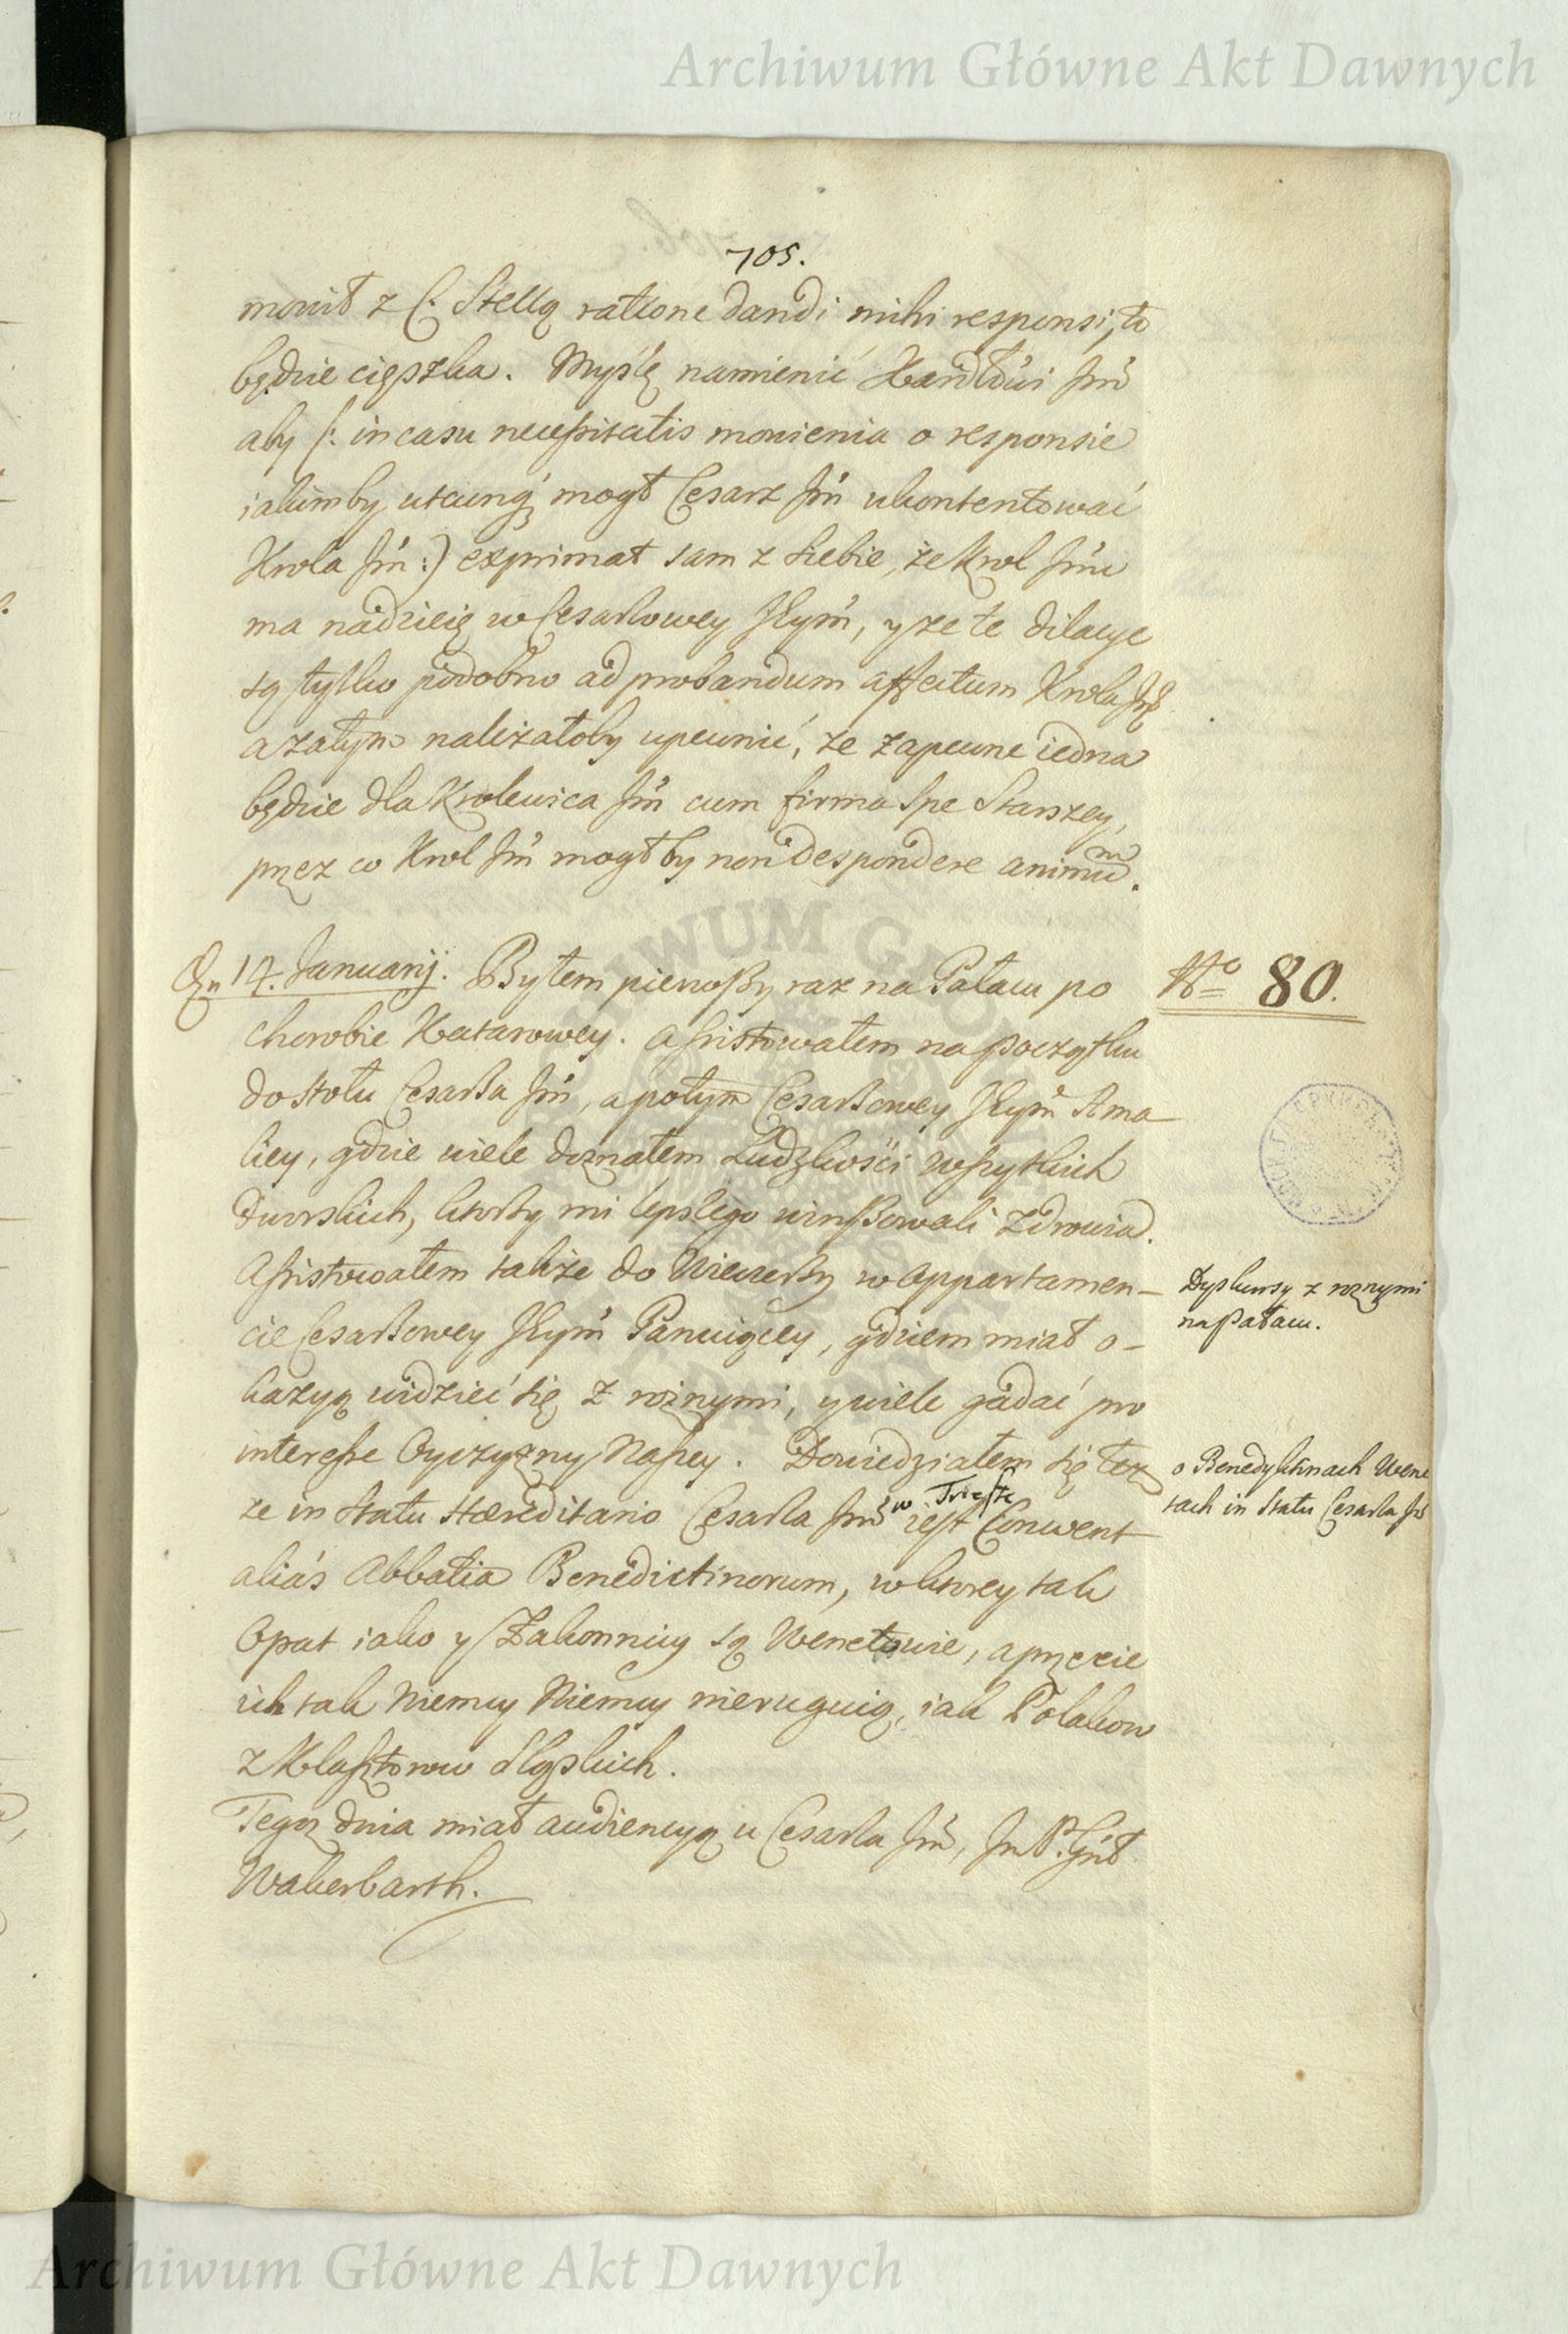 Archiwum Główne Akt Dawnych
705.
mowił z C: Stellą ratione dandi mihi responsi, to
będzie cięszka. Myślę namienić Xandłowi Jm̃
aby (: in casu necessitatis mowienia o responsie
iakimby utcunq́ mogł Cesarz Jm̃ ukontentować
Krola Jm̃ :) exprimat sam z siebie, że Krol Jm̃
ma nadzieię w Cesarzowey Jeym̃, y że te dilacye
są tylko podobno ad probandum affectum Krola Jm̃
a zatym należałoby upewnić, że zapewne iedna
będzie dla Krolewica Jm̃ cum firma spe Starszey,
przez co Krol Jm̃ mogłby non despondere animum.
Dn 14. Januarij. Byłem pierwszy raz na Pałacu po
chorobie Katarowey. Assistowałem na początku
do stołu Cesarza Jm̃, a potym Cesarzowey Jeym̃ Ama-
liey, gdzie wiele doznałem Ludzkości wszytkich
Dworskich, ktorzy mi lepszego winszowali zdrowia.
Assistowałem także do Wieczerzy w Appartamen-
cie Cesarzowey Jeym̃ Panuiącey, gdziem miał o-
kazyą widzieć się z rożnymi, y wiele gadać pro
interesse Oyczyzny Naszey. Dowiedziałem się też
że in Statu Hæreditario Cesarza Jm̃ w Trieste iest Conwent
aliás Abbatia Benedictinorum, w ktorey tak
Opat iako y Zakonnicy są Wenetowie, a przecie
ich tak Niemcy Niemcy nieruguią, iak Polakow
z Klasztorow Sląskich.
Tegoż dnia miał audiencyą u Cesarza Jm̃, Jm P. Gñł
Wakerbarth.
No 80.
Dyskursy z rożnymi
na Pałacu.
o Benedyktinach Wene
tach in Statu Cesarza Jm̃
Archiwum Główne Akt Dawnych